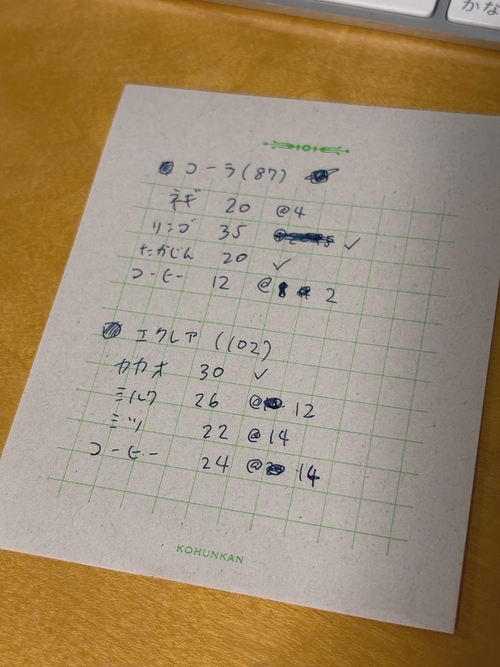 かな
コーラ(87)
ネギ 20 @4
リンゴ 35 ✓
たかじん 20 ✓
コーヒー 12 @ 2
エクレア (102)
カカオ 30 ✓
ミルク 26 @ 12
ミツ 22 @14
コーヒー 24 @ 14
KOHUNKAN